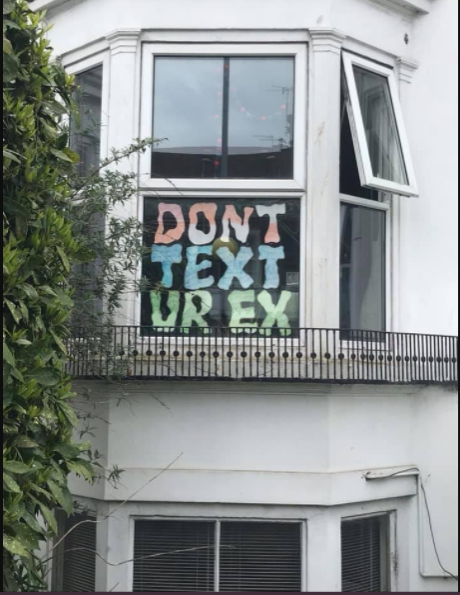 DONT
TEXT
UR EX